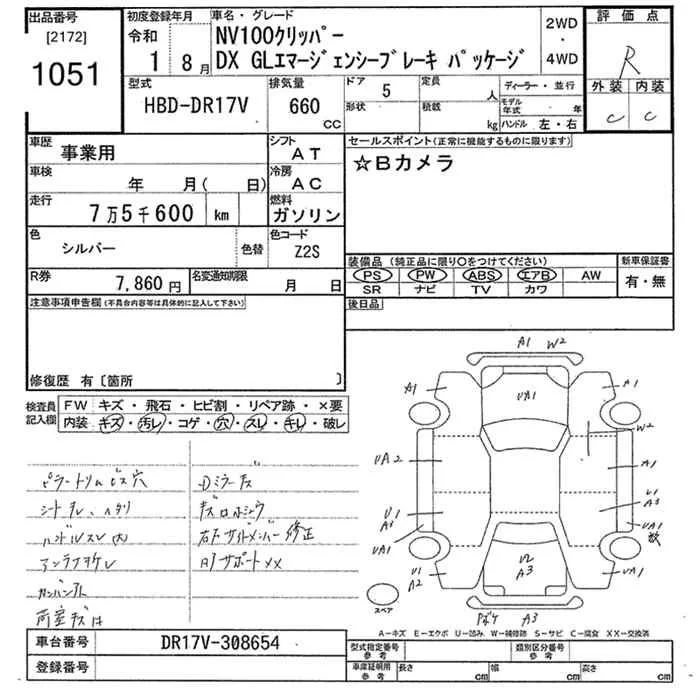 出品番号
[2172]
1051
初度登録年月
令和
1 8月
車名・グレード
NV100クリッパー
DX GLエマージェンシーブレーキ パッケージ
2WD
・
4WD
評価点
R
外装 内装
C C
型式
HBD-DR17V
排気量
660
CC
ドア
5
形状
定員
人
積載
kg
ディーラー・並行
モデル年式 年
ハンドル 左・右
車歴
事業用
シフト
AT
車検
年 月( 日)
冷房
AC
走行
7万5千600 km
燃料
ガソリン
色
シルバー
色替
色コード
Z2S
R券
7,860円
名変通知期限
月 日
セールスポイント(正常に機能するものに限ります)
☆Bカメラ
装備品 (純正品に限り○をつけてください)
PS PW ABS エアB AW
SR ナビ TV カワ
新車保証書
有・無
後日品
注意事項申告欄(不具合内容等は具体的に記入して下さい)
修復歴 有〔箇所 〕
検査員記入欄
FW キズ・飛石・ヒビ割・リペア跡・×要
内装 キズ・汚レ・コゲ・穴・スレ・キレ・破レ
ピラートリムビス穴
ハンドルスレ
A1 W2
A1
UA1
A1
W2
UA2
A1
U1
A1
U1
A3
UA1
UA1
数
U1
A2
W2
A3
UA1
スペア
A3
A-キズ E-エクボ U-凹み W-補修跡 S-サビ C-腐食 XX-交換済
車台番号
DR17V-308654
登録番号
型式指定番号
参考
類別区分番号
参考
車庫証明用
参考
長さ cm
幅 cm
高さ cm